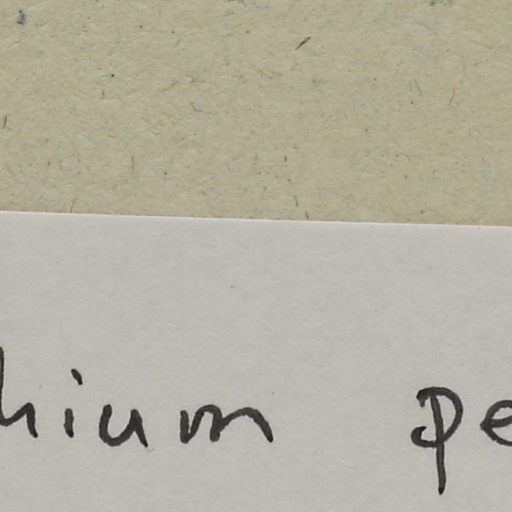 hium pe